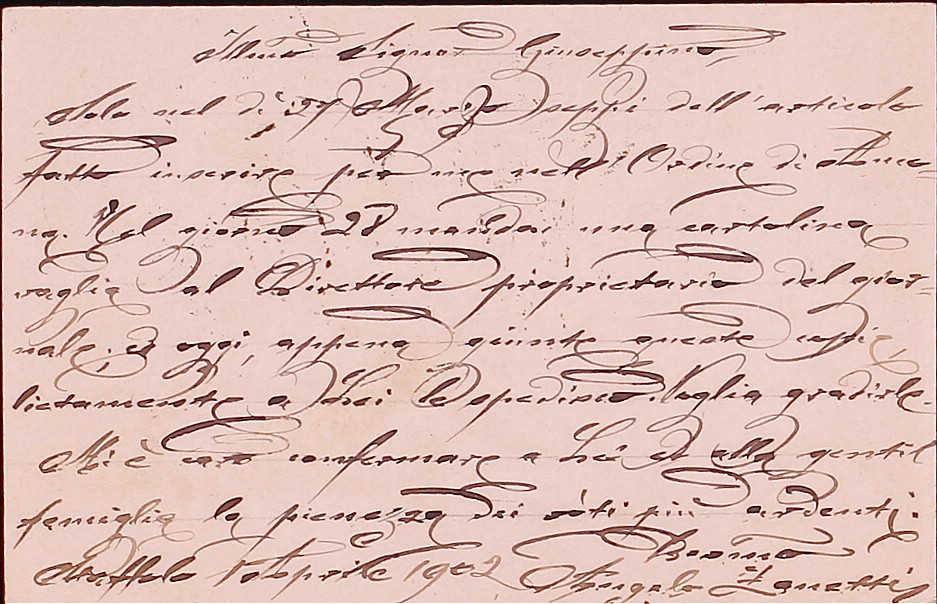 Illmo Signor Giuseppino,
Solo nel dì 27 Marzo seppi dell'articolo
fatto inserire per me nell'Ordine di Anco-
na. Nel giorno 28 mandai una cartolina
vaglia al Direttore proprietario del gior-
nale, ed oggi, appena giunte queste copie,
lietamente a Lei le spedisco. Voglia gradirle.
Mi è caro confermare a Lei ed alla gentil
famiglia la pienezza dei voti più ardenti.
Aprile 1902 Angelo Zanetti